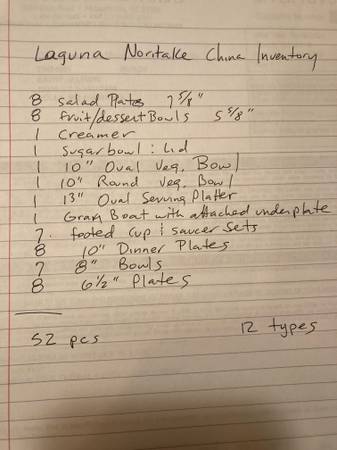 Laguna Noritake China Inventory
8 Salad Plates 7 5/8"
8 Fruit/dessert Bowls 5 5/8"
1 Creamer
1 Sugar bowl & Lid
1 10" Oval Veg. Bowl
1 10" Round Veg. Bowl
1 13" Oval Serving Platter
1 Gravy Boat with attached underplate
7 footed Cup & saucer Sets
8 10" Dinner Plates
7 8" Bowls
8 6 1/2" Plates
52 pcs 12 types